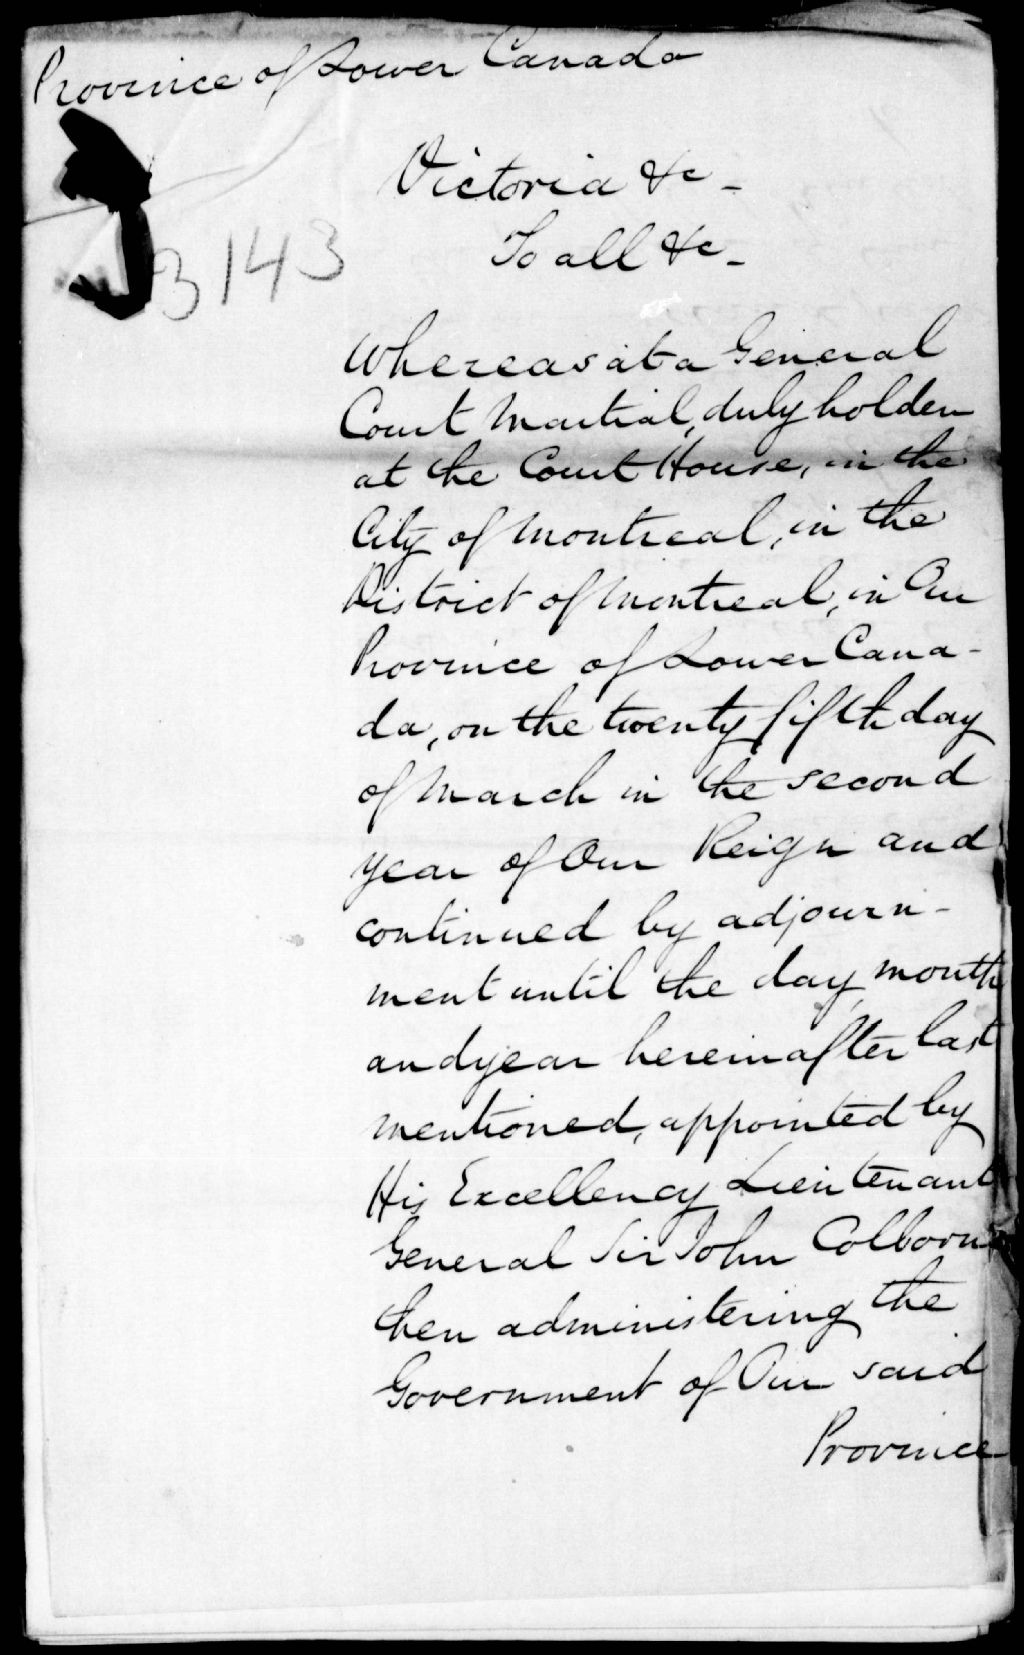 Province of Lower Canada
Victoria &c -
To all &c -
3143
Whereas at a General
Court Martial, duly holden
at the Court House, in the
City of Montreal, in the
District of Montreal, in Our
Province of Lower Cana-
da, on the twenty fifth day
of March in the second
year of Our Reign and
continued by adjourn-
ment until the day, month
and year hereinafter last
mentioned, appointed by
His Excellency Lieutenant
General Sir John Colborn
then administering the
Government of Our said
Province